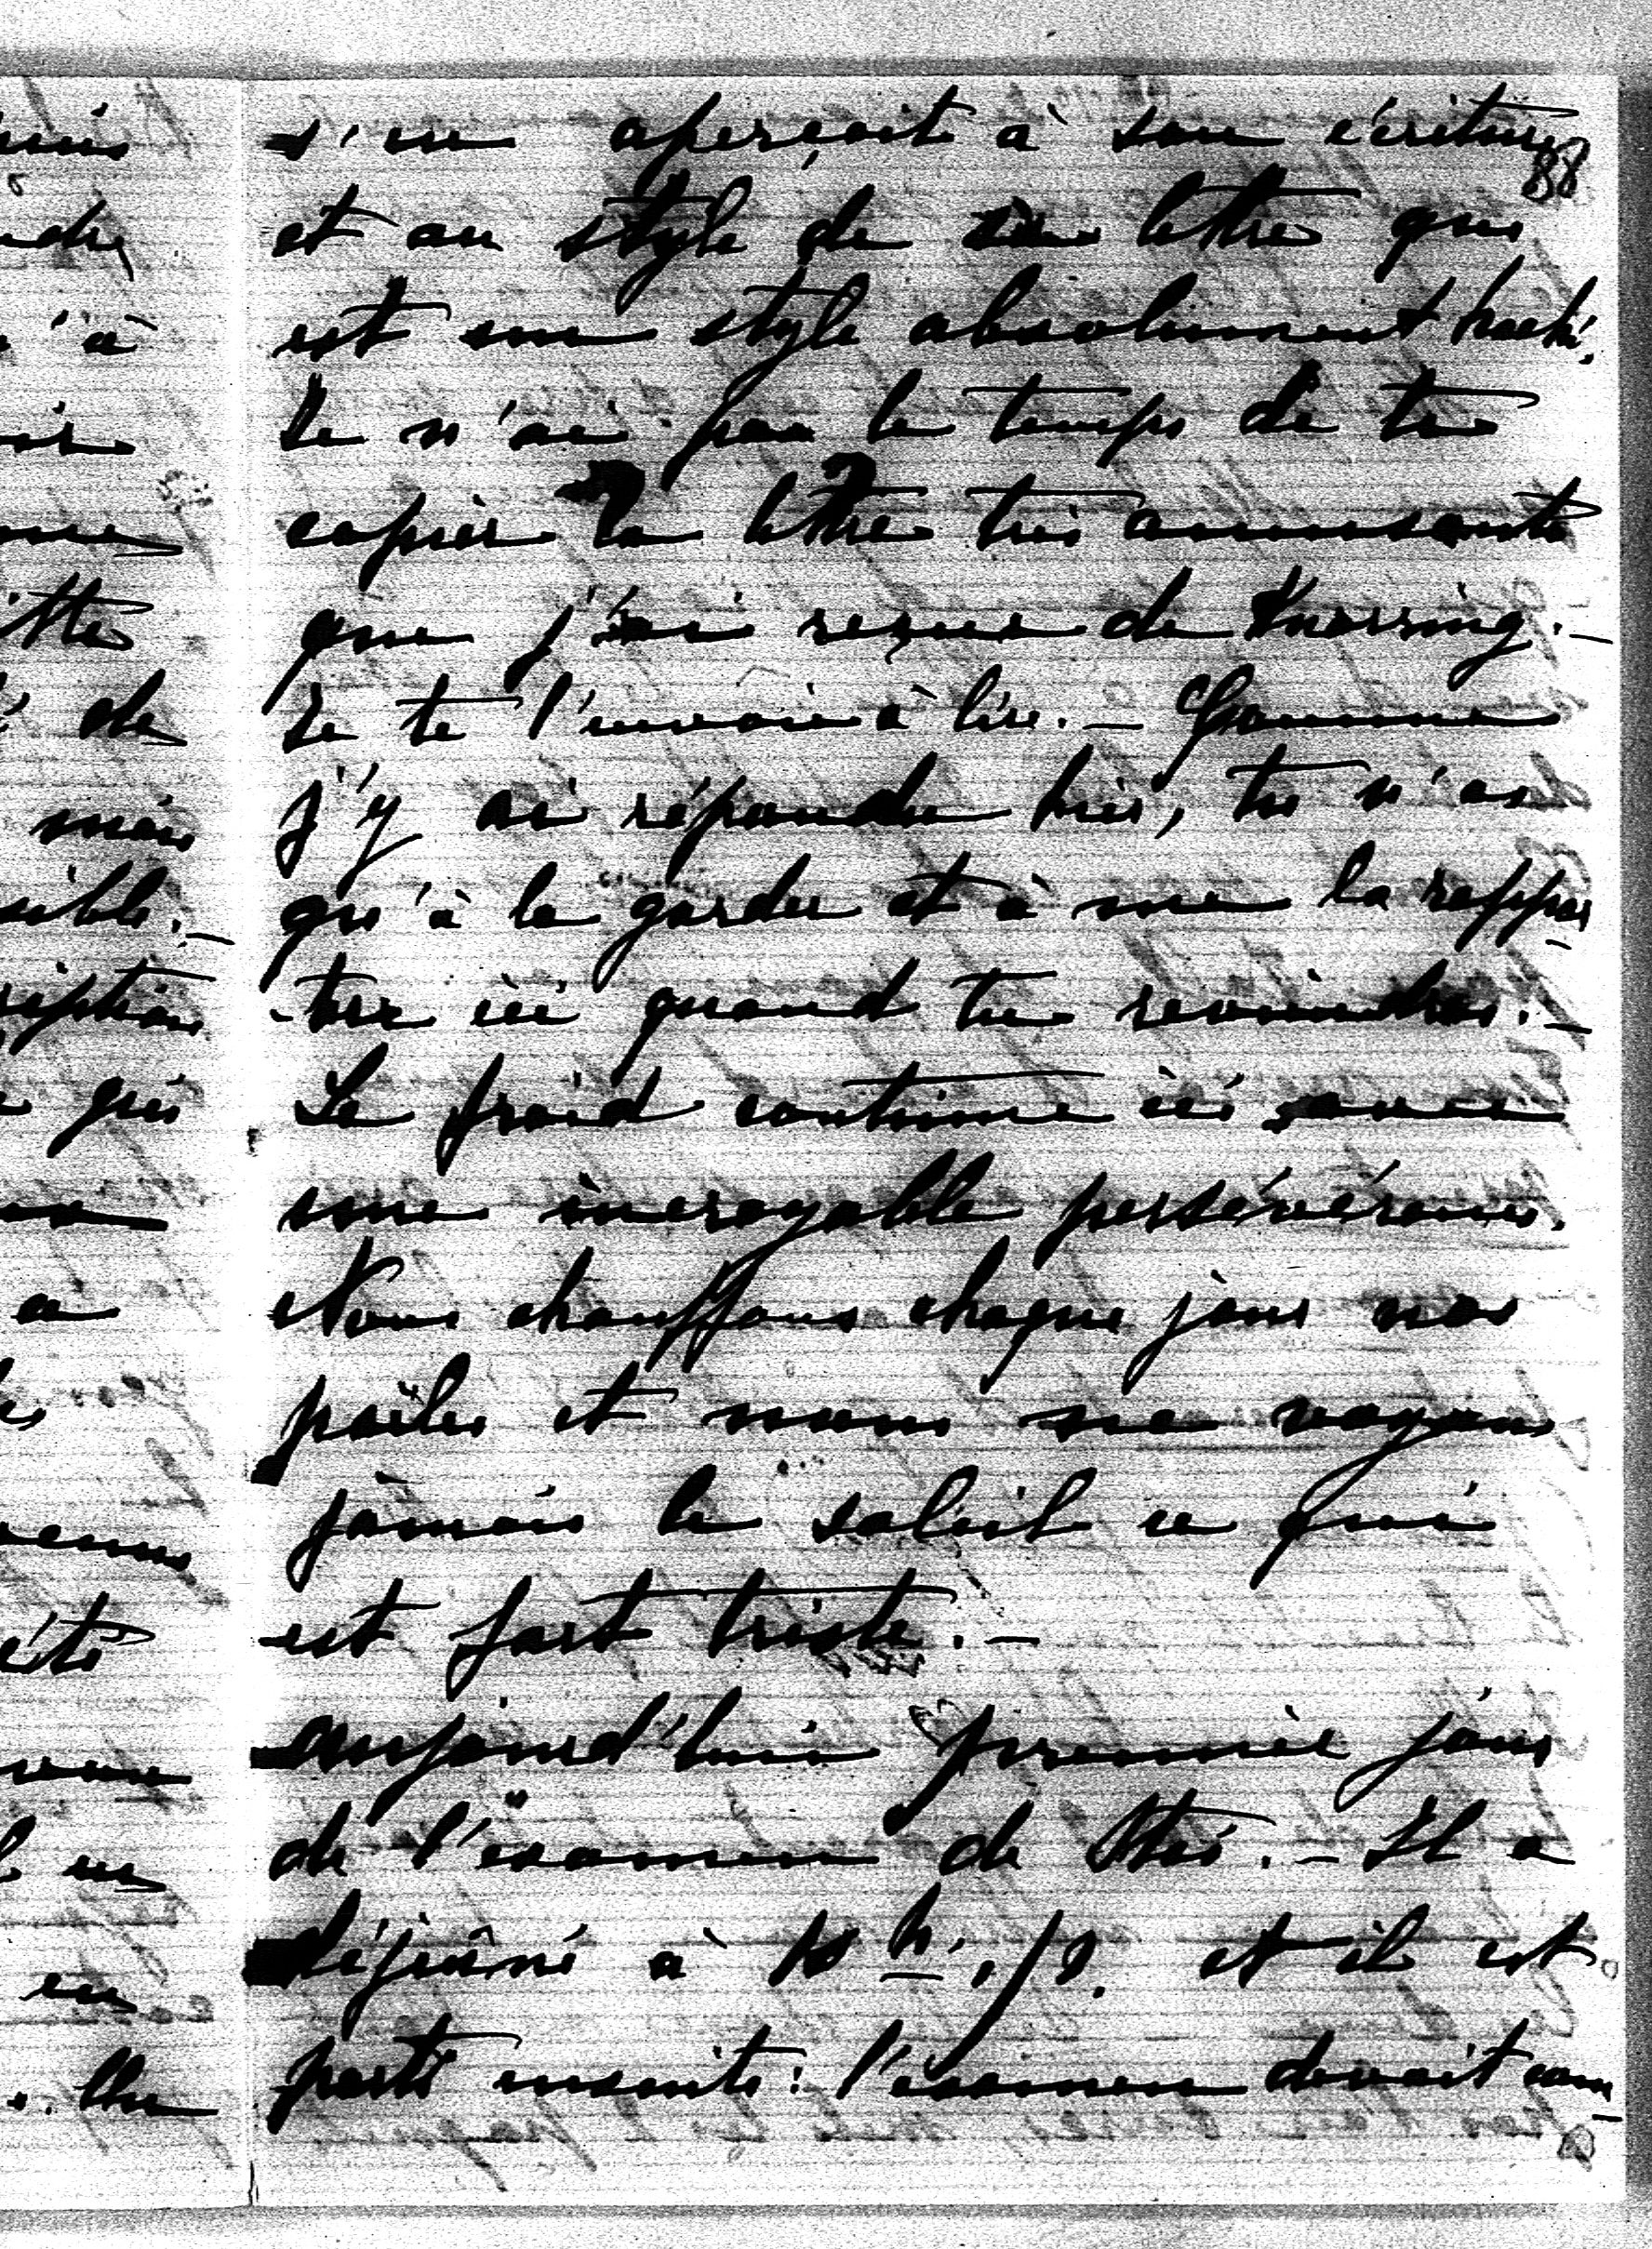 88
s'en aperçoit à son écriture
et au style de sa lettre qui
est son style absolument haché.
Je n'ai pas le temps de te
copier la lettre très amusante
que j'ai reçue de Knorring. —
Je te l'envoie à lire. — Comme
j'y ai répondu hier, tu n'as
qu'à la garder et à me la rappor
-ter ici quand tu reviendras. —
Le froid continue ici avec
une incroyable persévérance.
Nous chauffons chaque jour nos
poêles et nous ne voyons
jamais le soleil ce qui
est fort triste. —
Aujourd'hui premier jour
de l'examen de . — Il a
déjeûné à 10 h. 1/2. et il est
parti ensuite: l'examen devait com-